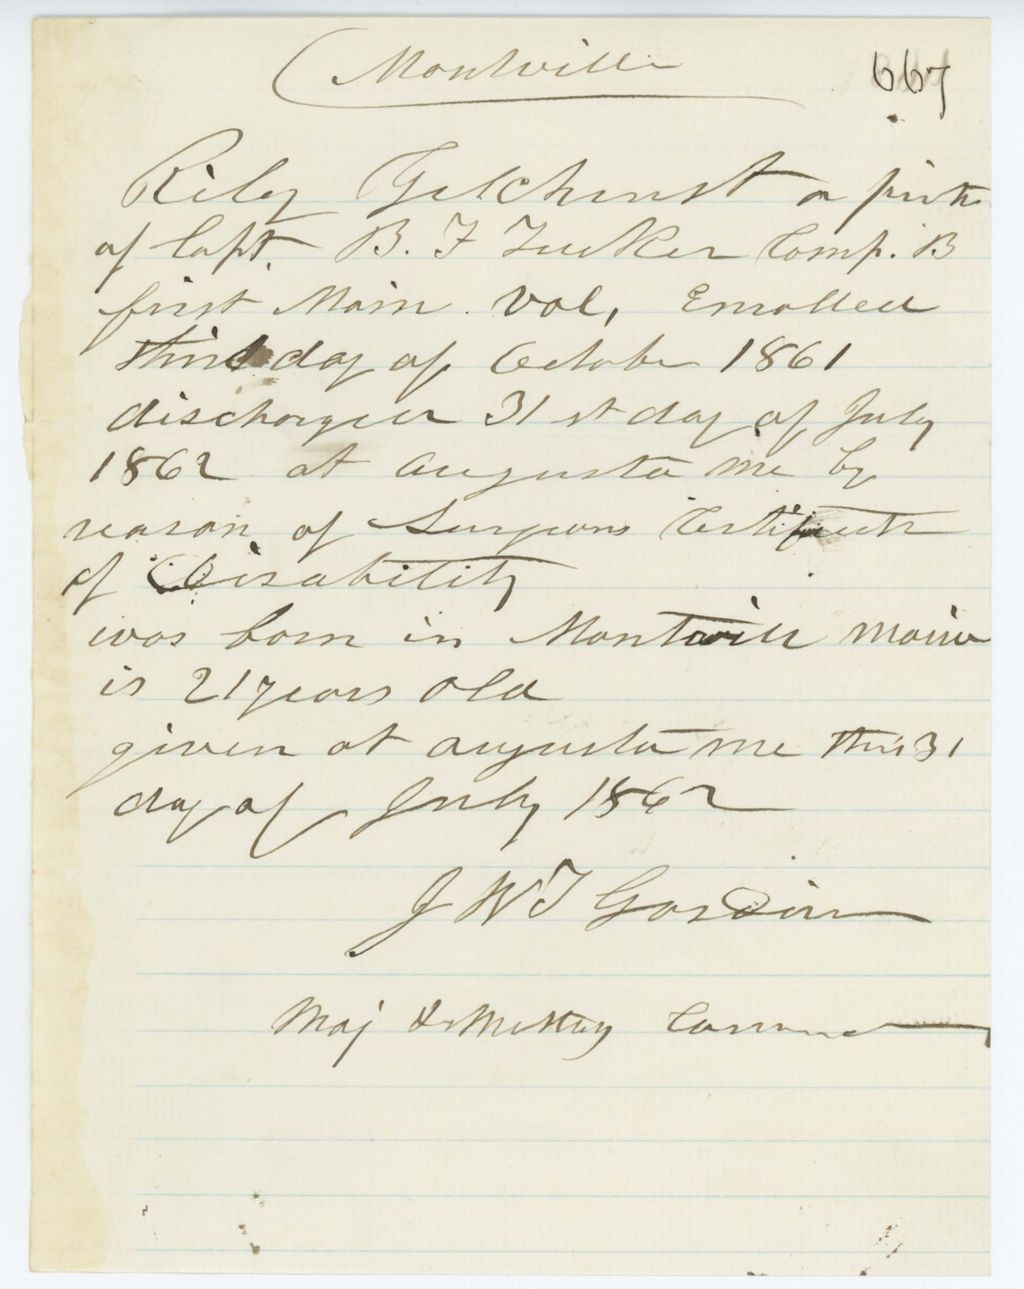 Montville 667
Riley Gilchrist a
of Capt. B. F Tucker Comp. B
first Main Vol, Enrolled
third day of October 1861
discharged 31 st day of July
1862 at augusta me by
reason of Surgeons Certificate
of Disability
was born in Montville Maine
is 21 years old
given at augusta me this 31
day of July 1862
J W T Gardiner
Maj & Mustg